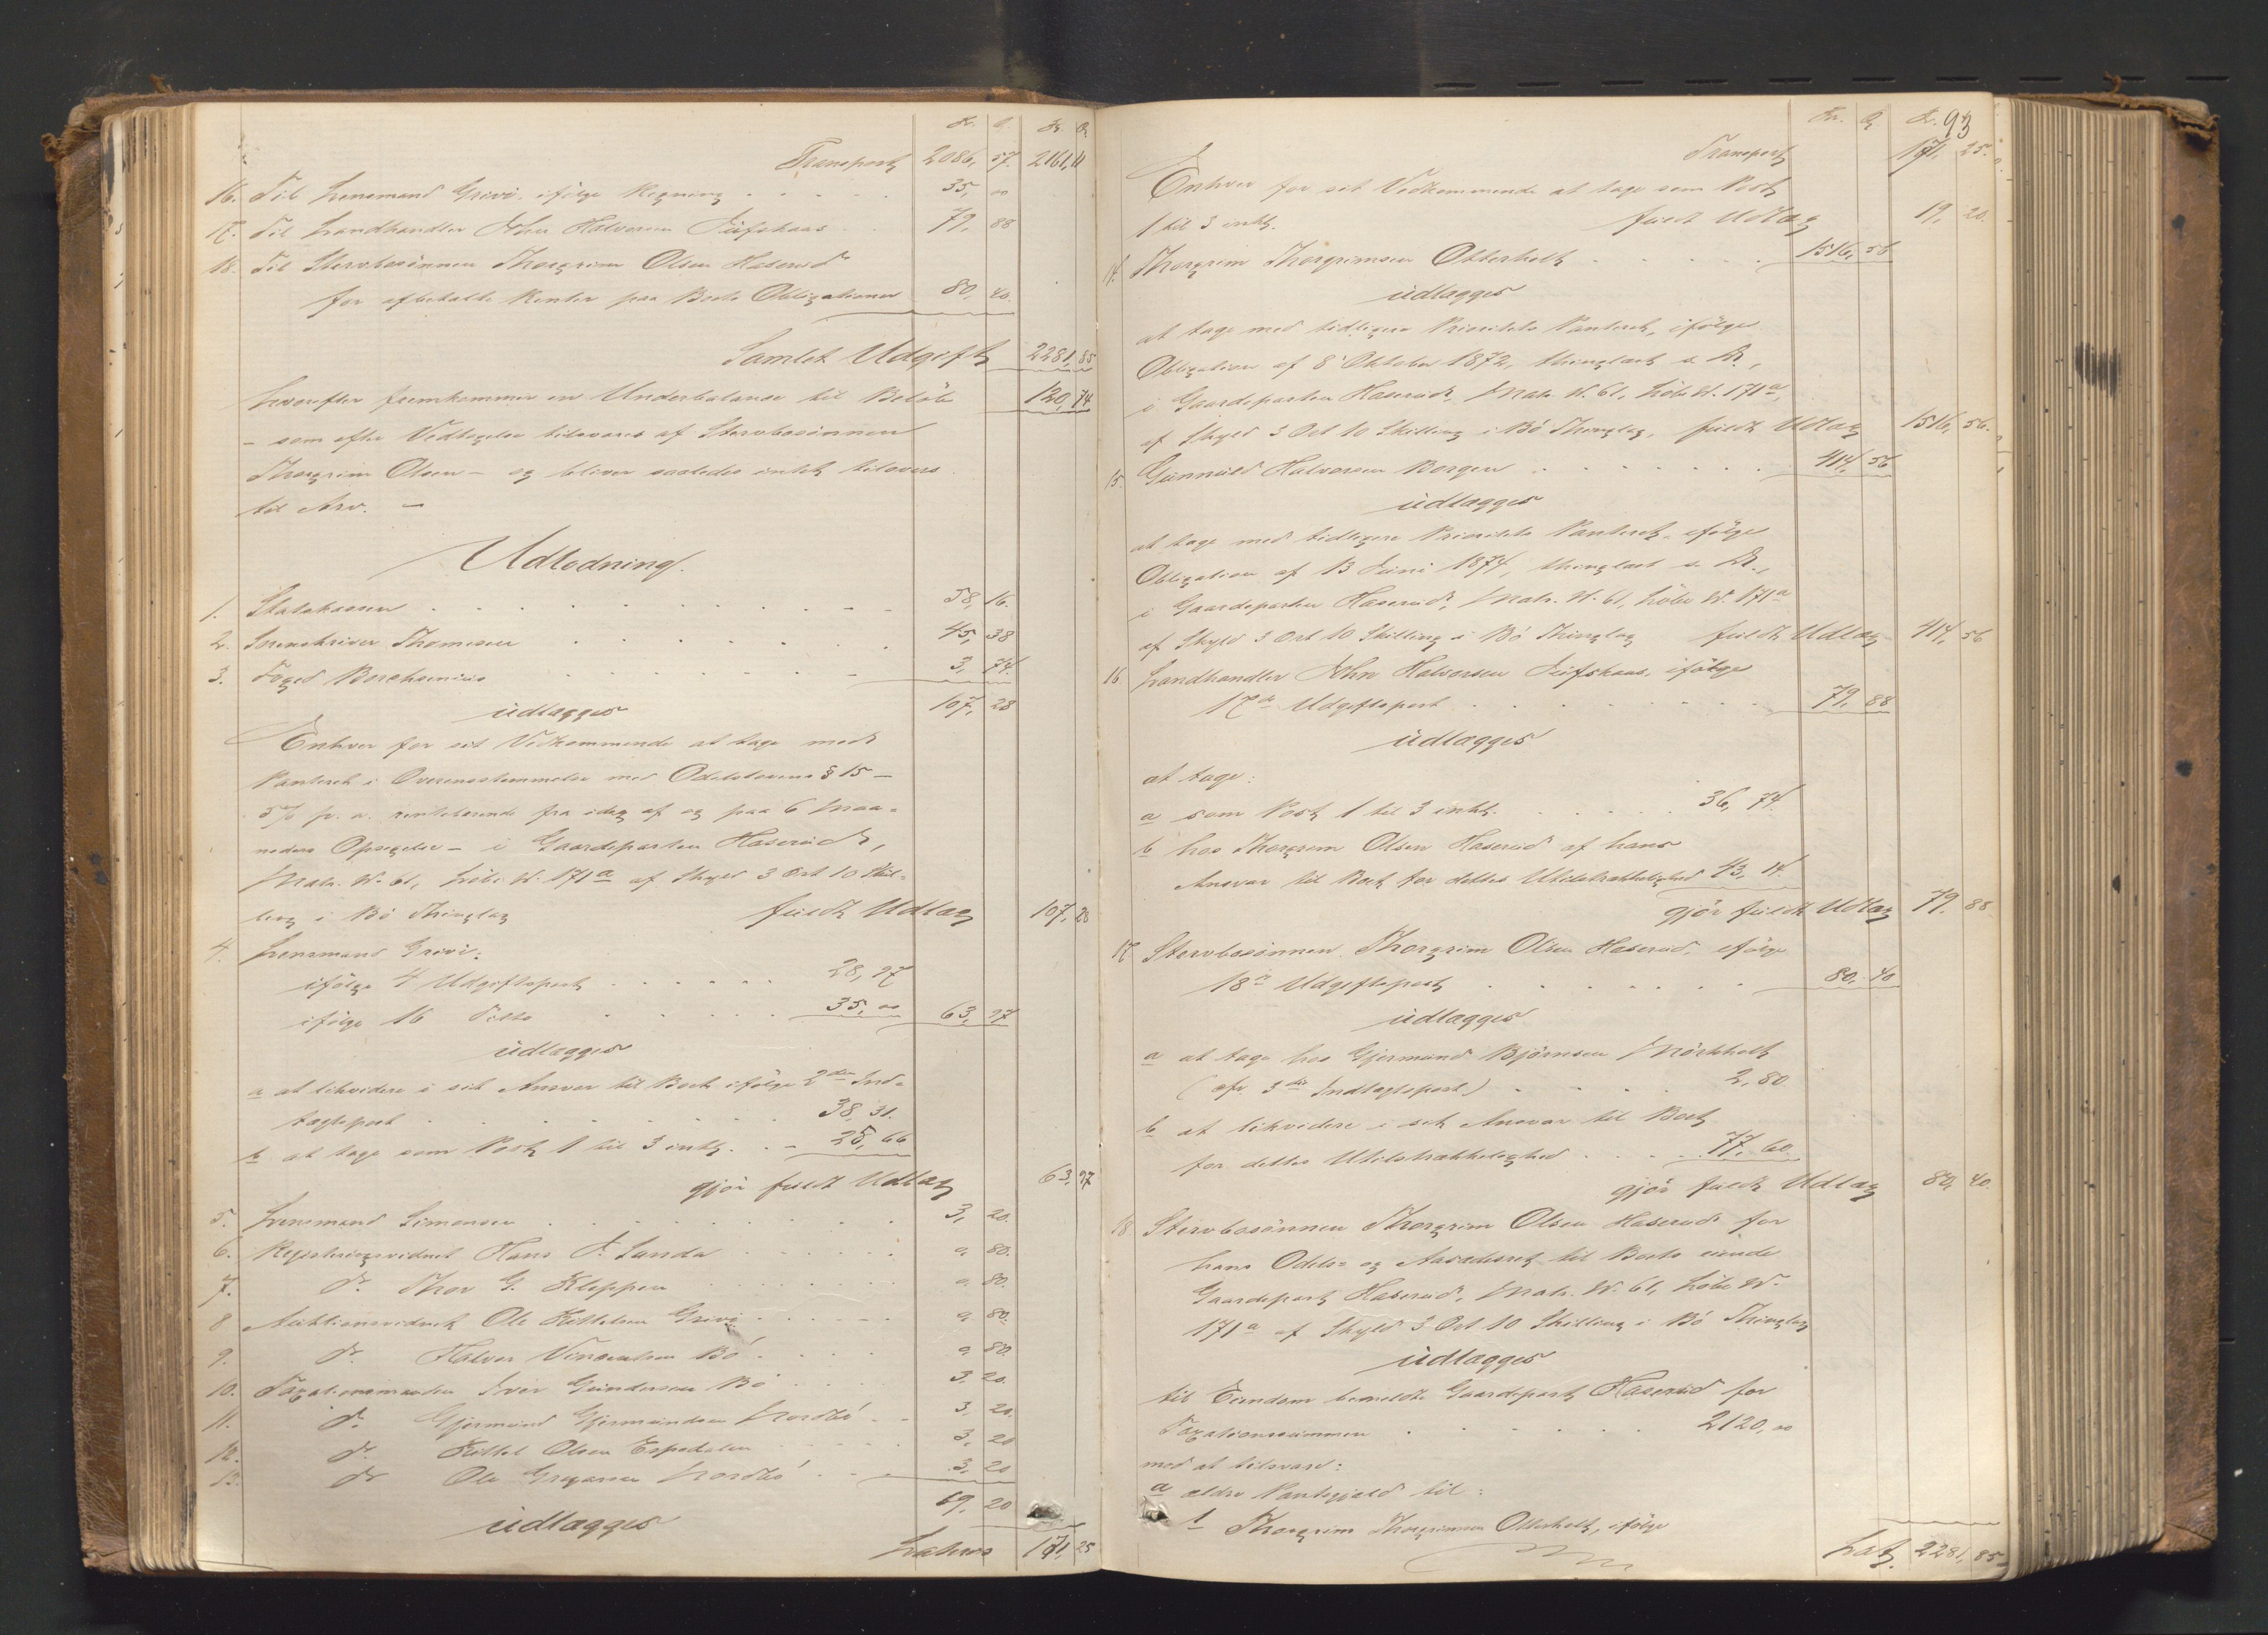 Kr. Ø. Kr. Ø.
Transport 2086, 57. 2161, 11
16. Til Lensmand Grivi ifölge Regning 35, 00
17. Til Landhandler John Halvorsen 79, 88
18. Til Stervbosönnen Thorgrim Olsen Haserud
for afbetalte Renter paa Boets Obligationer 80, 40.
Samlet Udgift 2281, 85
hvorefter fremkommer en Underbalance til Belöb 120, 74
– som efter Vedtagelse tilsvares af Stervbosönnen
Thorgrim Olsen – og bliver saaledes intet tilovers
til Arv. –
Udlodning.
1. Statskassen 58, 16.
2. Sorenskriver Thomesen 45, 38
3. Foged Borchsenius 3, 74.
udlægges 107, 28
Enhver for sit Vedkommende at tage med
Panteret i Overensstemmelse med Odelslovens § 15 –
5% p. a. rentebærende fra idag af og paa 6 Maa-
neders Opsigelse – i Gaardeparten Haserud,
Matr. N. 61, Löbe N. 171a af Skyld 3 Ort 10 Skil-
ling i Bö Thinglag fuldt Udlæg 107, 28
4. Lensmand Grivi.
ifölge 4 Udgiftspost 28, 97
ifölge 16 Ditto 35, 00 63, 97
udlægges
a at likvidere i sit Ansvar til Boet ifölge 2den Ind-
tægtspost 38, 31.
b at tage som Post 1 til 3 inkl. 25, 66
gjör fuldt Udlæg 63, 97
5. Lensmand Simonsen 3, 20.
6. Registreringsvidnet Hans J. Sanda 0, 80.
7. do Thor G. Kleppen 0, 80.
8 Auktionsvidnet Ole Kittelsen Grivi 0, 80.
9. do Halvor Vincentsen Bö 0, 80.
10. Taxationsmanden Iver Gundersen Bö 3, 20.
11. do Gjermund Gjermundsen Nordbö 3, 20.
12. do Kittel Olsen Espedalen 3, 20
13. do Ole Gregarsen Nordbö 3, 20
19, 20
udlægges
Latus 171, 25
93
Kr. Ø. K.
Transport 171, 25.
Enhver for sit Vedkommende at tage som Post
1 til 3 inkl. fuldt Udlæg 19, 20.
14. Thorgrim Thorgrimsen Otterholt 1516, 56
udlægges
at tage med tidligere Prioritets Panteret, ifölge
Obligation af 8 Oktober 1872, thinglæst s. A.,
i Gaardeparten Haserud, Matr. N. 61, Löbe N. 171a,
af Skyld 3 Ort 10 Skilling i Bö Thinglag, fuldt Udlæg 1516, 56.
15. Gunnuld Halvorsen Borgen 414, 56
udlægges
at tage med tidligere Prioritets Panteret, ifölge
Obligation af 13 Juni 1874, thinglæst s. A.,
i Gaardeparten Haserud, Matr. N. 61, Löbe N. 171a
af Skyld 3 Ort 10 Skilling i Bö Thinglag fuldt Udlæg 414, 56
16. Landhandler John Halvorsen ifölge
17de Udgiftspost 79, 88
udlægges
at tage:
a som Post 1 til 3 inkl. 36, 74.
b hos Thorgrim Olsen Haserud af hans
Ansvar til Boet for dettes Utilstrækkelighed 43, 14.
gjör fuldt Udlæg 79, 88
17 Stervbosönnen Thorgrim Olsen Haserud, ifölge
18de Udgiftspost 80, 40
udlægges
a at tage hos Gjermund Björnsen Mörkholt
(cfr. 3die Indtægtspost) 2, 80
b at likvidere i sit Ansvar til Boet
for dettes Utilstrækkelighed 77, 60.
gjör fuldt Udlæg 80, 40.
18 Stervbosönnen Thorgrim Olsen Haserud for
hans Odels- og Aasædesret til Boets eiende
Gaardepart Haserud, Matr. N. 61, Löbe N.
171a af Skyld 3 Ort 10 Skilling i Bö Thinglag
udlægges
til Eiendom bemeldte Gaardepart Haserud for
Taxationssummen 2120, 00
mod at tilsvare:
a ældre Pantegjæld til:
1 Thorgrim Thorgrimsen Otterholt, ifölge
Lat. 2281, 85